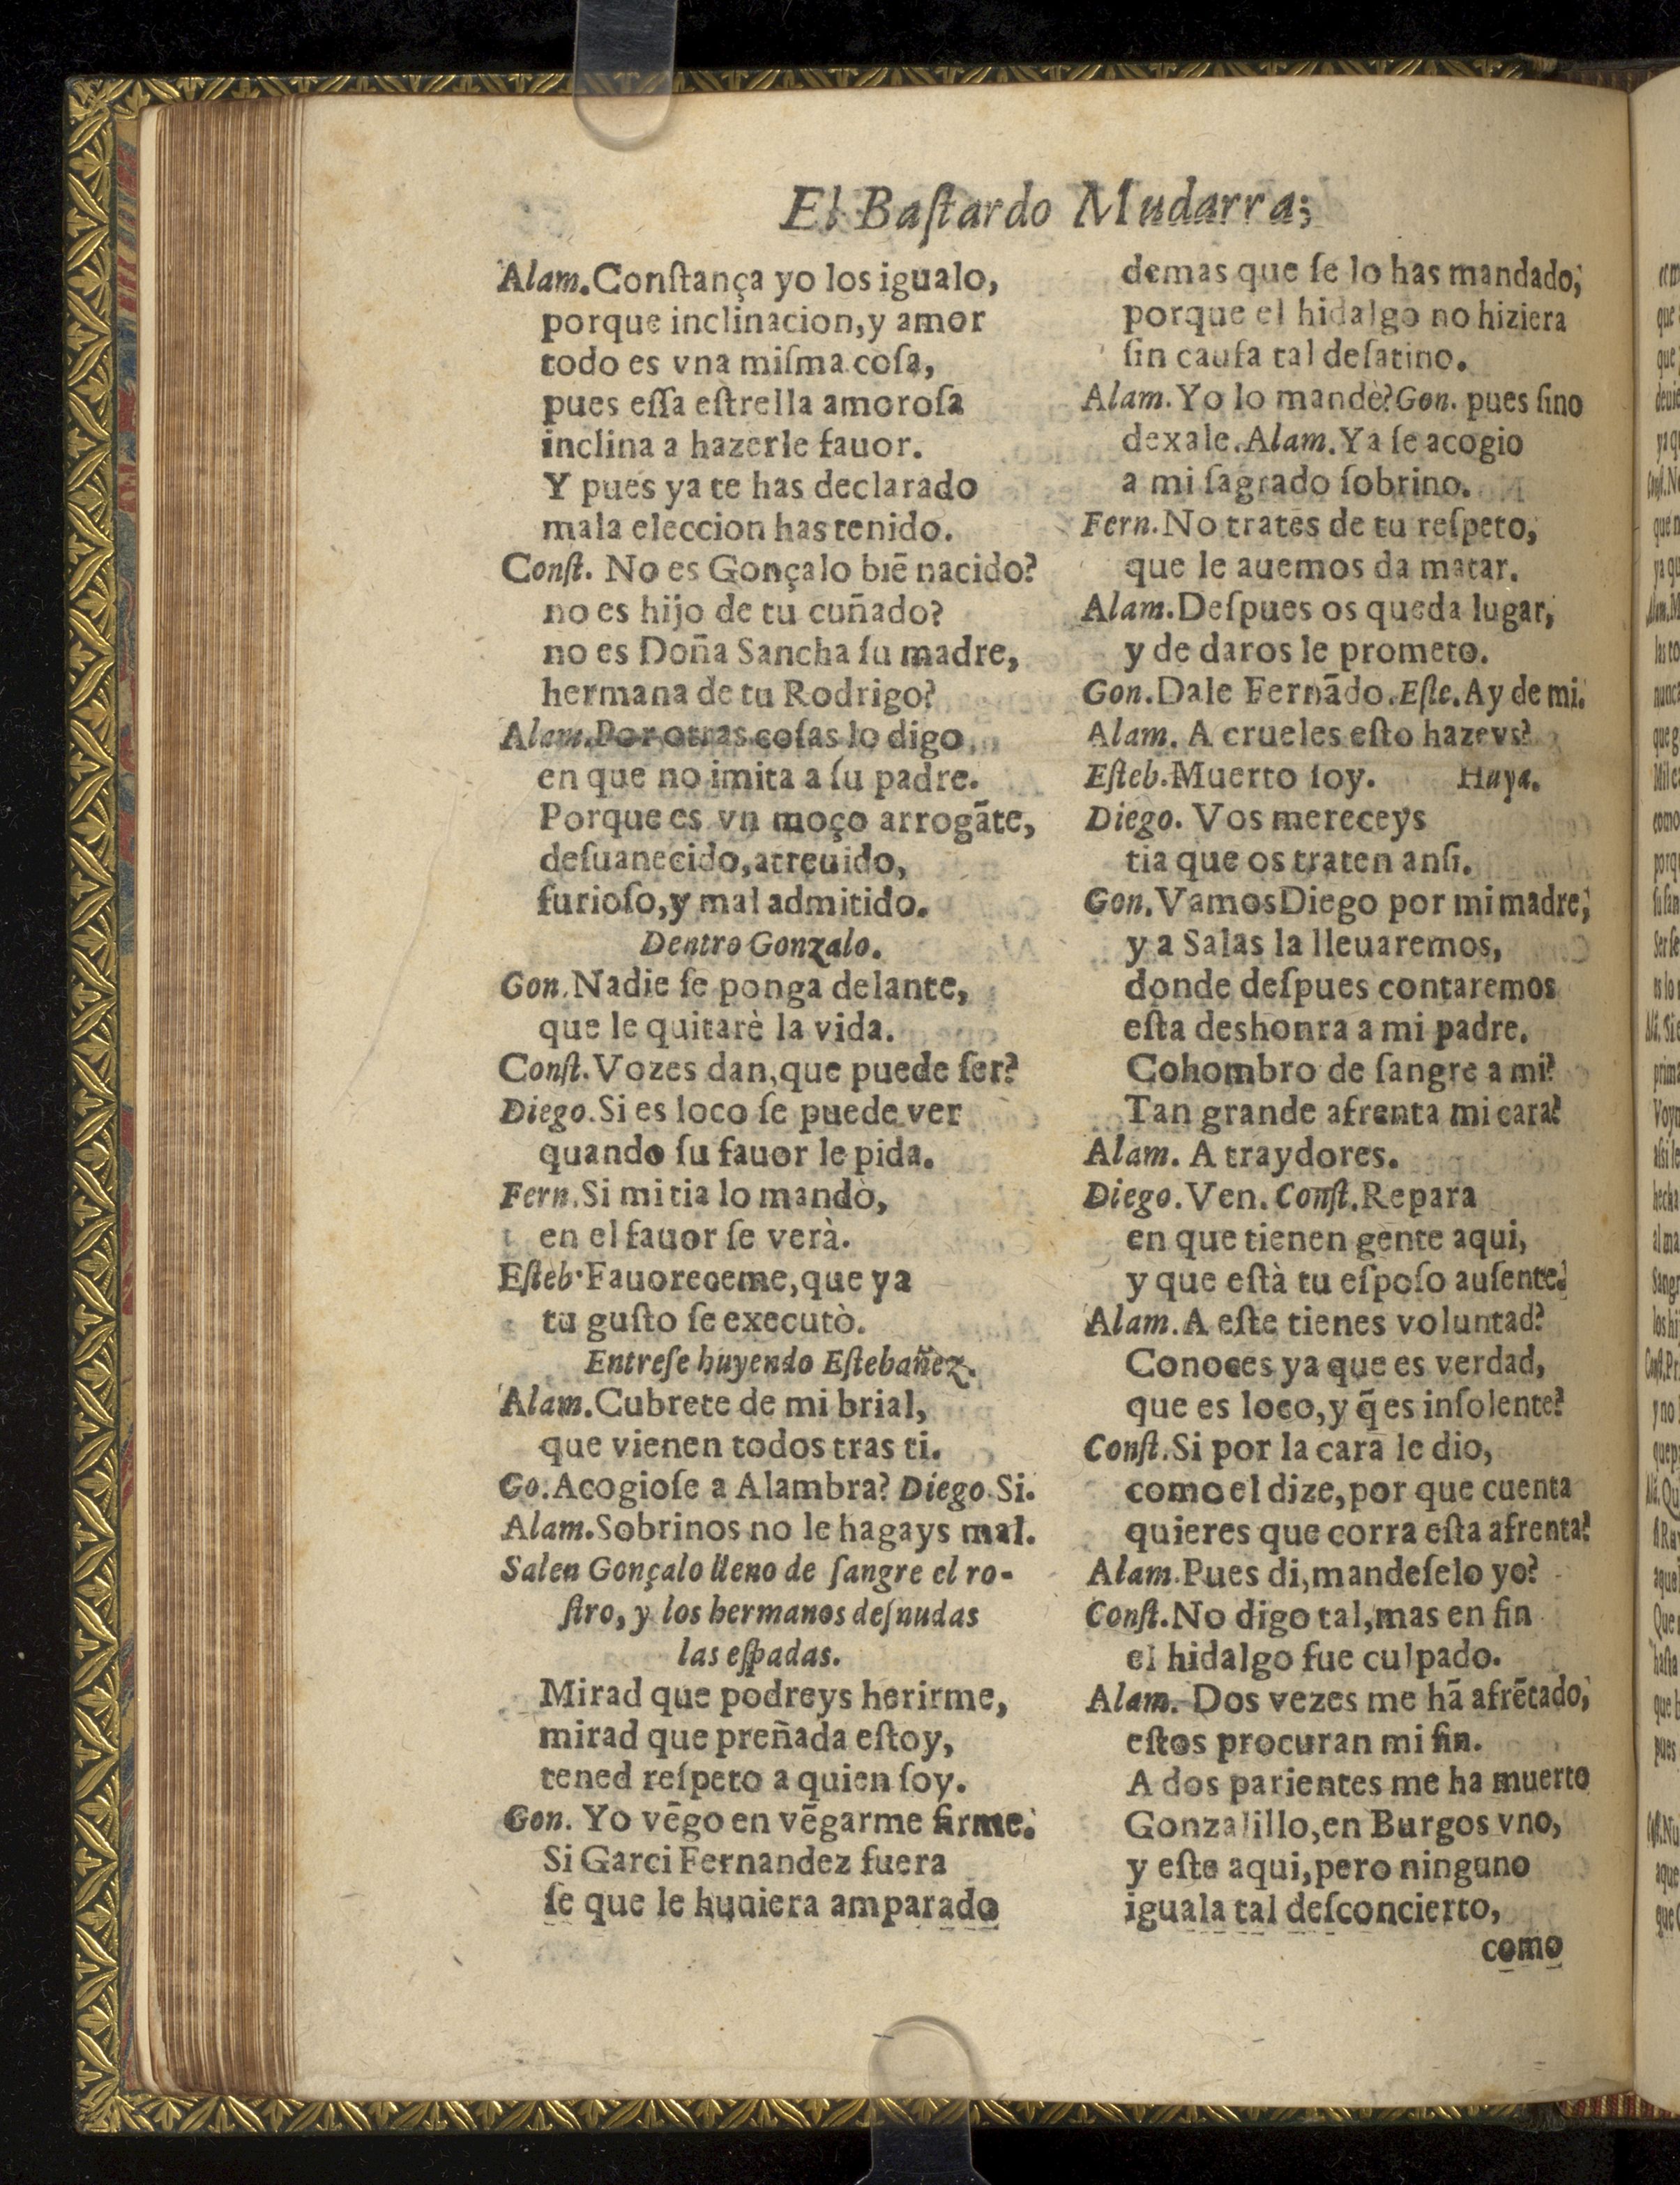 El Baſtardo Mudarra;
Alam. Conſtança yo los igualo,
porque inclinacion, y amor
todo es vna miſma coſa,
pues eſſa eſtrella amoroſa
inclina a hazerle fauor.
Y pues ya te has declarado
mala eleccion has tenido.
Conſt. No es Gonçalo biẽ nacido?
no es hijo de tu cuñado?
no es Doña Sancha ſu madre,
hermana de tu Rodrigo?
Alam. Por otras coſas lo digo,
en que no imita a ſu padre.
Porque es vn moço arrogãte,
deſuanecido, atreuido,
furioſo, y mal admitido.
Dentro Gonzalo.
Gon. Nadie ſe ponga delante,
que le quitarè la vida.
Conſt. Vozes dan, que puede ſer?
Diego. Si es loco ſe puede ver
quando ſu fauor le pida.
Fern. Si mi tia lo mandò,
en el fauor ſe verà.
Eſteb. Fauoreceme, que ya
tu guſto ſe executò.
Entreſe huyendo Eſtebañez.
Alam. Cubrete de mi brial,
que vienen todos tras ti.
Go. Acogioſe a Alambra? Diego. Si.
Alam. Sobrinos no le hagays mal.
Salen Gonçalo lleno de ſangre el ro-
ſtro, y los hermanos deſnudas
las eſpadas.
Mirad que podreys herirme,
mirad que preñada eſtoy,
tened reſpeto a quien ſoy.
Gon. Yo vẽgo en vẽgarme firme.
Si Garci Fernandez fuera
ſe que le huuiera amparado
demas que ſe lo has mandado,
porque el hidalgo no hiziera
ſin cauſa tal deſatino.
Alam. Yo lo mandè? Gon. pues ſino
dexale. Alam. Ya ſe acogio
a mi ſagrado ſobrino.
Fern. No trates de tu reſpeto,
que le auemos da matar.
Alam. Deſpues os queda lugar,
y de daros le prometo.
Gon. Dale Fernãdo. Eſte. Ay de mi.
Alam. A crueles eſto hazeys?
Eſteb. Muerto ſoy. Huya.
Diego. Vos mereceys
tia que os traten anſi.
Gon. Vamos Diego por mi madre,
y a Salas la lleuaremos,
donde deſpues contaremos
eſta deshonra a mi padre.
Cohombro de ſangre a mi?
Tan grande afrenta mi cara?
Alam. A traydores.
Diego. Ven. Conſt. Repara
en que tienen gente aqui,
y que eſtà tu eſpoſo auſente.
Alam. A eſte tienes voluntad?
Conoces ya que es verdad,
que es loco, y q̃ es inſolente?
Conſt. Si por la cara le dio,
como el dize, por que cuenta
quieres que corra eſta afrenta?
Alam. Pues di, mandeſelo yo?
Conſt. No digo tal, mas en fin
el hidalgo fue culpado.
Alam. Dos vezes me hã afrẽtado,
eſtos procuran mi fin.
A dos parientes me ha muerto
Gonzalillo, en Burgos vno,
y eſte aqui, pero ninguno
iguala tal deſconcierto,
como